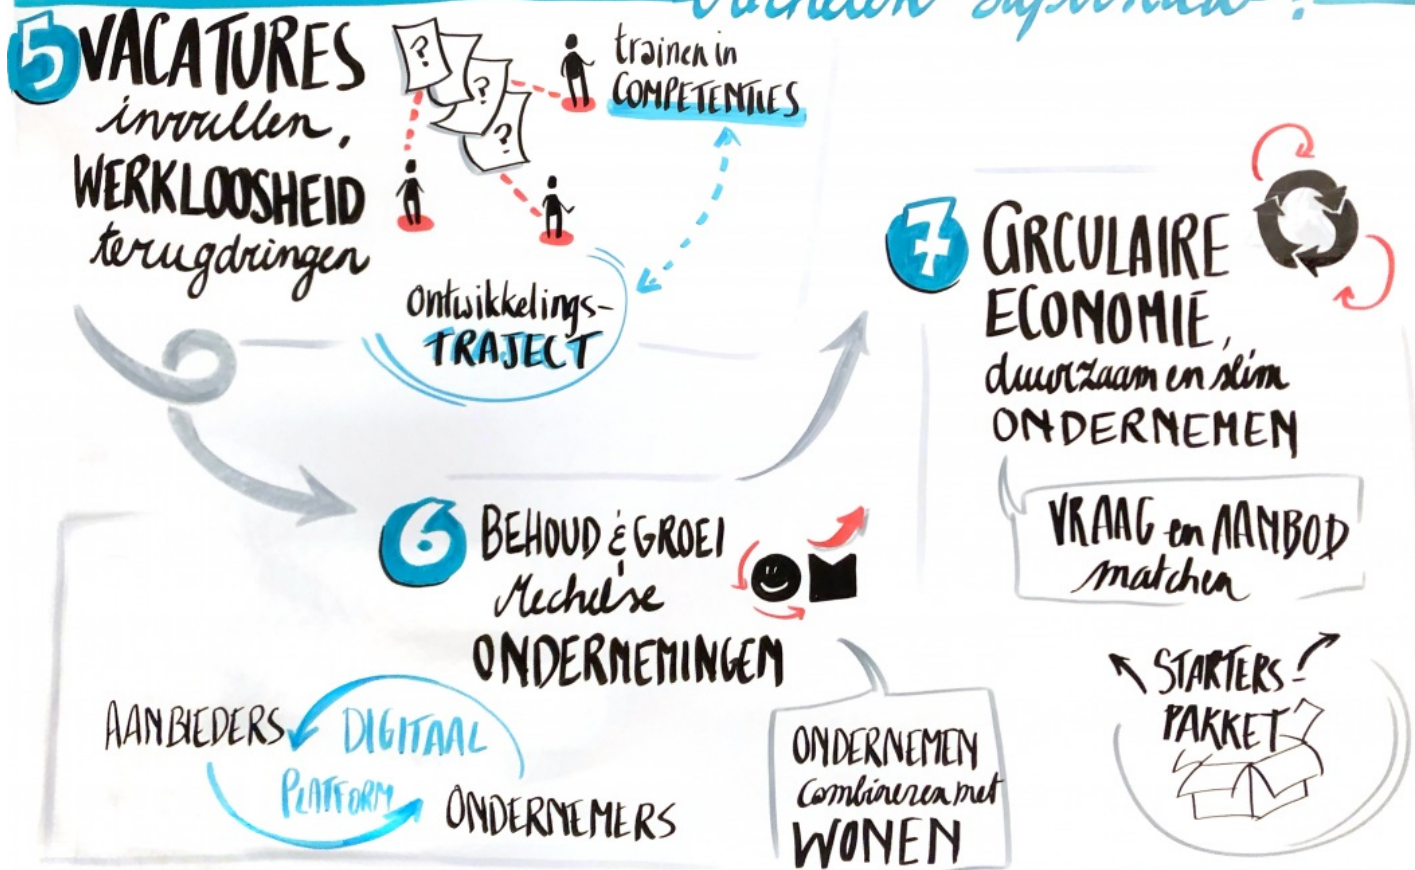 5 VACATURES
invullen,
WERKLOOSHEID
terugdringen
?
?
?
trainen in
COMPETENTIES
ontwikkelings-
TRAJECT
6 BEHOUD & GROEI
Mechelse
ONDERNEMINGEN
M
AANBIEDERS
DIGITAAL
PLATFORM
ONDERNEMERS
ONDERNEMEN
combineren met
WONEN
7 CIRCULAIRE
ECONOMIE,
duurzaam en slim
ONDERNEMEN
VRAAG en AANBOD
matchen
STARTERS-
PAKKET